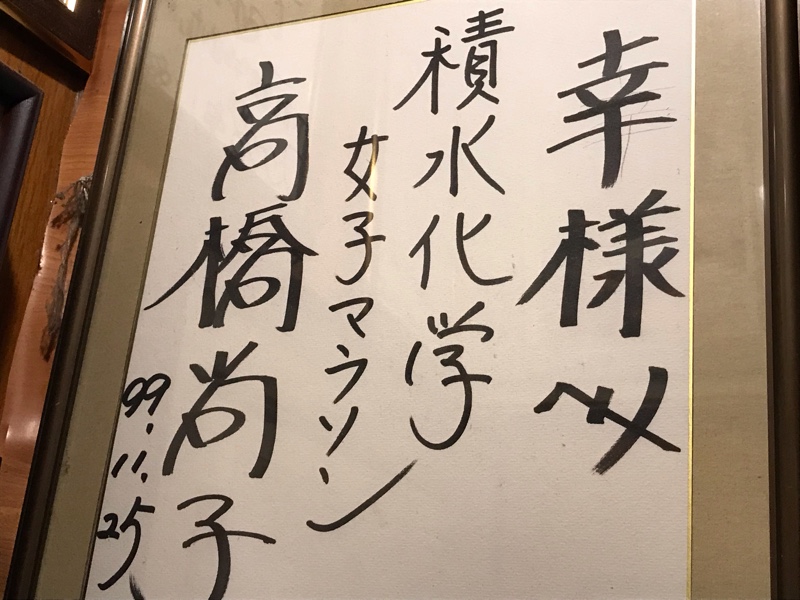 幸様へ
積水化学
女子マラソン
高橋尚子
99.11.25